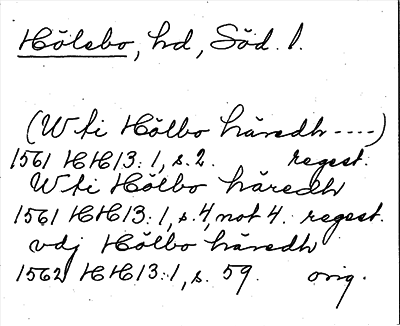 Hölebo, hd, Söd. l.
(W ti Hölbo häredh ----)
1561 HH 13:1, s. 2. regest.
W ti Hölbo häredh
1561 HH 13:1, s. 4, not 4. regest.
vdj Hölbo häredh
1562 HH 13:1, s. 59. orig.